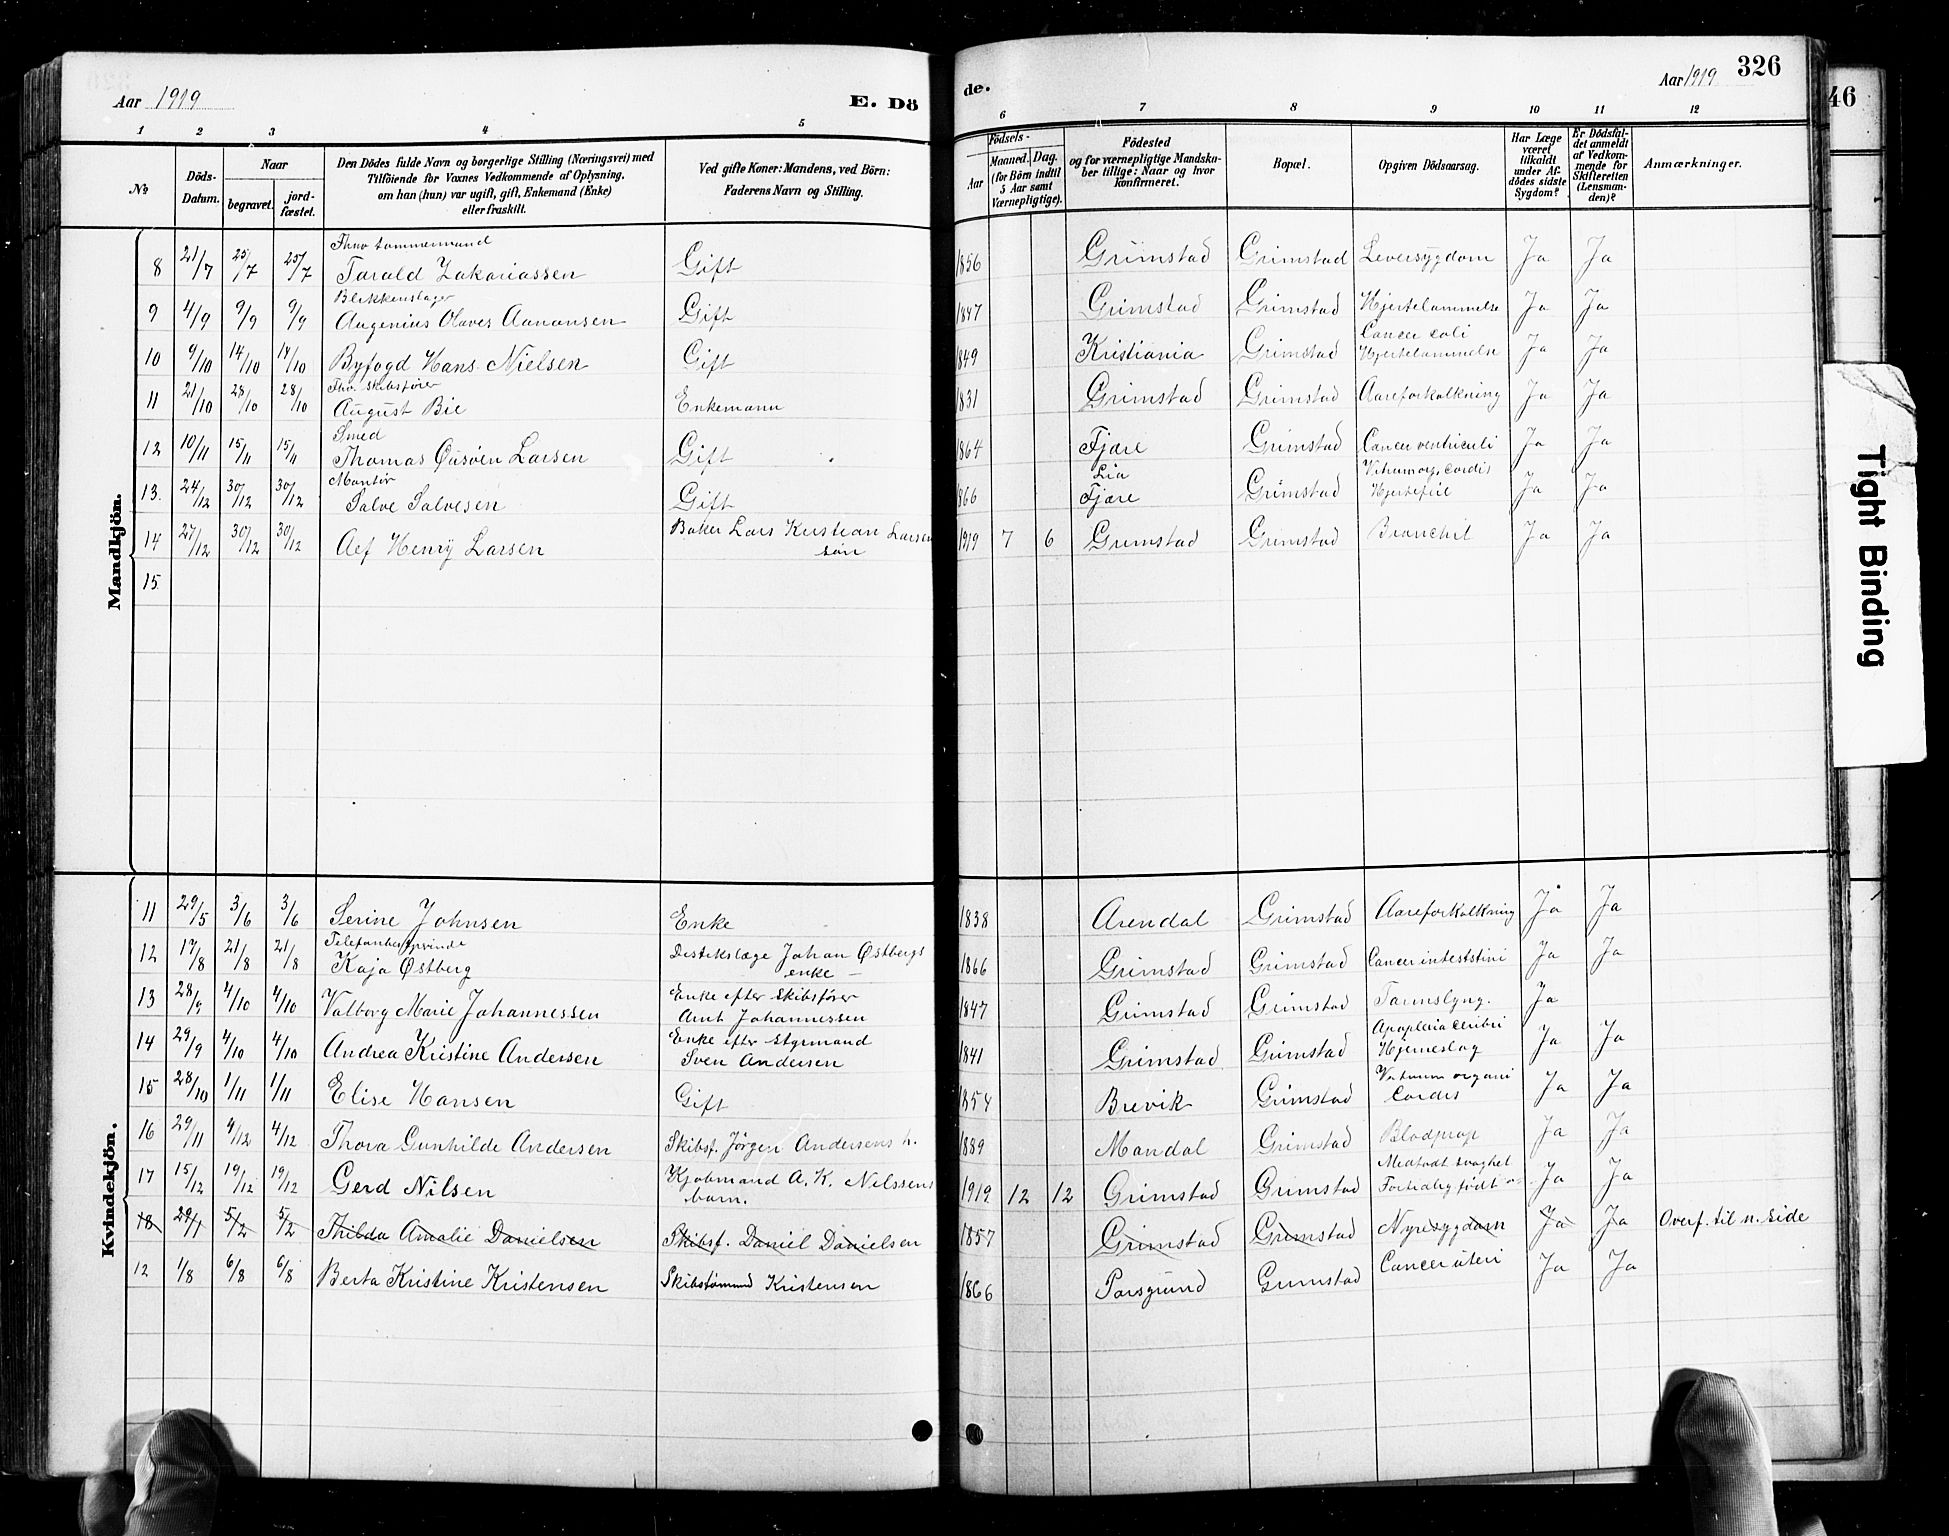 Aar 1919
E. Dö
de.
Aar 1919
326
46
1 2 3 4 5 6 7 8 9 10 11 12
No
Döds-Datum.
Naar
begravet.
jord-fæstet.
Den Dödes fulde Navn og borgerlige Stilling (Næringsvei) med
Tilföiende for Voxnes Vedkommende af Oplysning.
om han (hun) var ugift, gift, Enkemand (Enke)
eller fraskilt.
Ved gifte Koner: Mandens, ved Börn:
Faderens Navn og Stilling.
Födsels-
Aar
Maaned. Dag.
(for Börn indtil
5 Aar samt
Værnepligtige).
Födested
og for værnepligtige Mandska-
ber tillige: Naar og hvor
konfirmeret.
Bopæl.
Opgiven Dödsaarsag.
Har Læge
været
tilkaldt
under Af-
dödes sidste
Sygdom?
Er Dödsfal-
det anmeldt
af Vedkom-
mende for
Skifteretten
(Lensman-
den)?
Anmærkninger.
Mandkjön.
8 21/7 25/7 25/7 Thv tømmermand
Tarald Zakariassen Gift 1856 Grimstad Grimstad Leversygdom Ja Ja
9 4/9 9/9 9/9 Blikkenslager
Augenius Olaves Aanonsen Gift 1847 Grimstad Grimstad Hjertelammelse Ja Ja
10 9/10 14/10 14/10 Byfogd Hans Nielsen Gift 1849 Kristiania Grimstad Cancer coli
Hjertelammelse Ja Ja
11 21/10 28/10 28/10 Fhv. Skibsfører
August Bie Enkemann 1831 Grimstad Grimstad Aareforkalkning Ja Ja
12 10/11 15/11 15/11 Smed
Thomas Øusøen Larsen Gift 1864 Fjære Grimstad Cancer ventriculi Ja Ja
13. 24/12 30/12 30/12 Montør
Salve Salvesen Gift 1866 Lia
Fjære Grimstad Vitium org. cordis
Hjertefeil Ja Ja
14 27/12 30/12 30/12 Aef Henry Larsen Baker Lars Kirstian Larsen
søn 1919 7 6 Grimstad Grimstad Bronchit Ja Ja
15
Kvindekjön.
11 29/5 3/6 3/6 Serine Johnsen Enke 1838 Arendal Grimstad Aareforkalkning Ja Ja
12 17/8 21/8 21/8 Telefonbestyrerinde
Kaja Østberg Distrikslæge Johan Østbergs
enke 1866 Grimstad Grimstad Cancer inteststini Ja Ja
13 28/9 4/10 4/10 Valborg Marie Johannessen Enke efter Skibsfører
Arnt Johannessen 1847 Grimstad Grimstad Tarmslyng. Ja
14 29/9 4/10 4/10 Andrea Kristine Andersen Enke efter Styrmand
Sven Andersen 1841 Grimstad Grimstad Apoplexia cerebri
Hjerneslag Ja Ja
15 28/10 1/11 1/11 Elise Hansen Gift 1854 Brevik Grimstad Vitium organi
Cordis Ja Ja
16 29/11 4/12 4/12 Thora Gunhilde Andersen Skibsf. Jørgen Andersens h. 1889 Mandal Grimstad Blodprop Ja Ja
17 15/12 19/12 19/12 Gerd Nilsen Kjøbmand A. K. Nilssens
barn. 1919 12 12 Grimstad Grimstad Medfødt svaghet
Fortidlig født Ja Ja
18 29/1 5/2 5/2 Thilda Amalie Danielsen Skibsf. Daniel Danielsen 1857 Grimstad Grimstad Nyresygdom Ja Ja Overf. til n. side
12 1/8 6/8 6/8 Berta Kristine Kristensen Skibstømmd Kristensen 1866 Porsgrund Grimstad Cancer uteri Ja Ja
Tight Binding